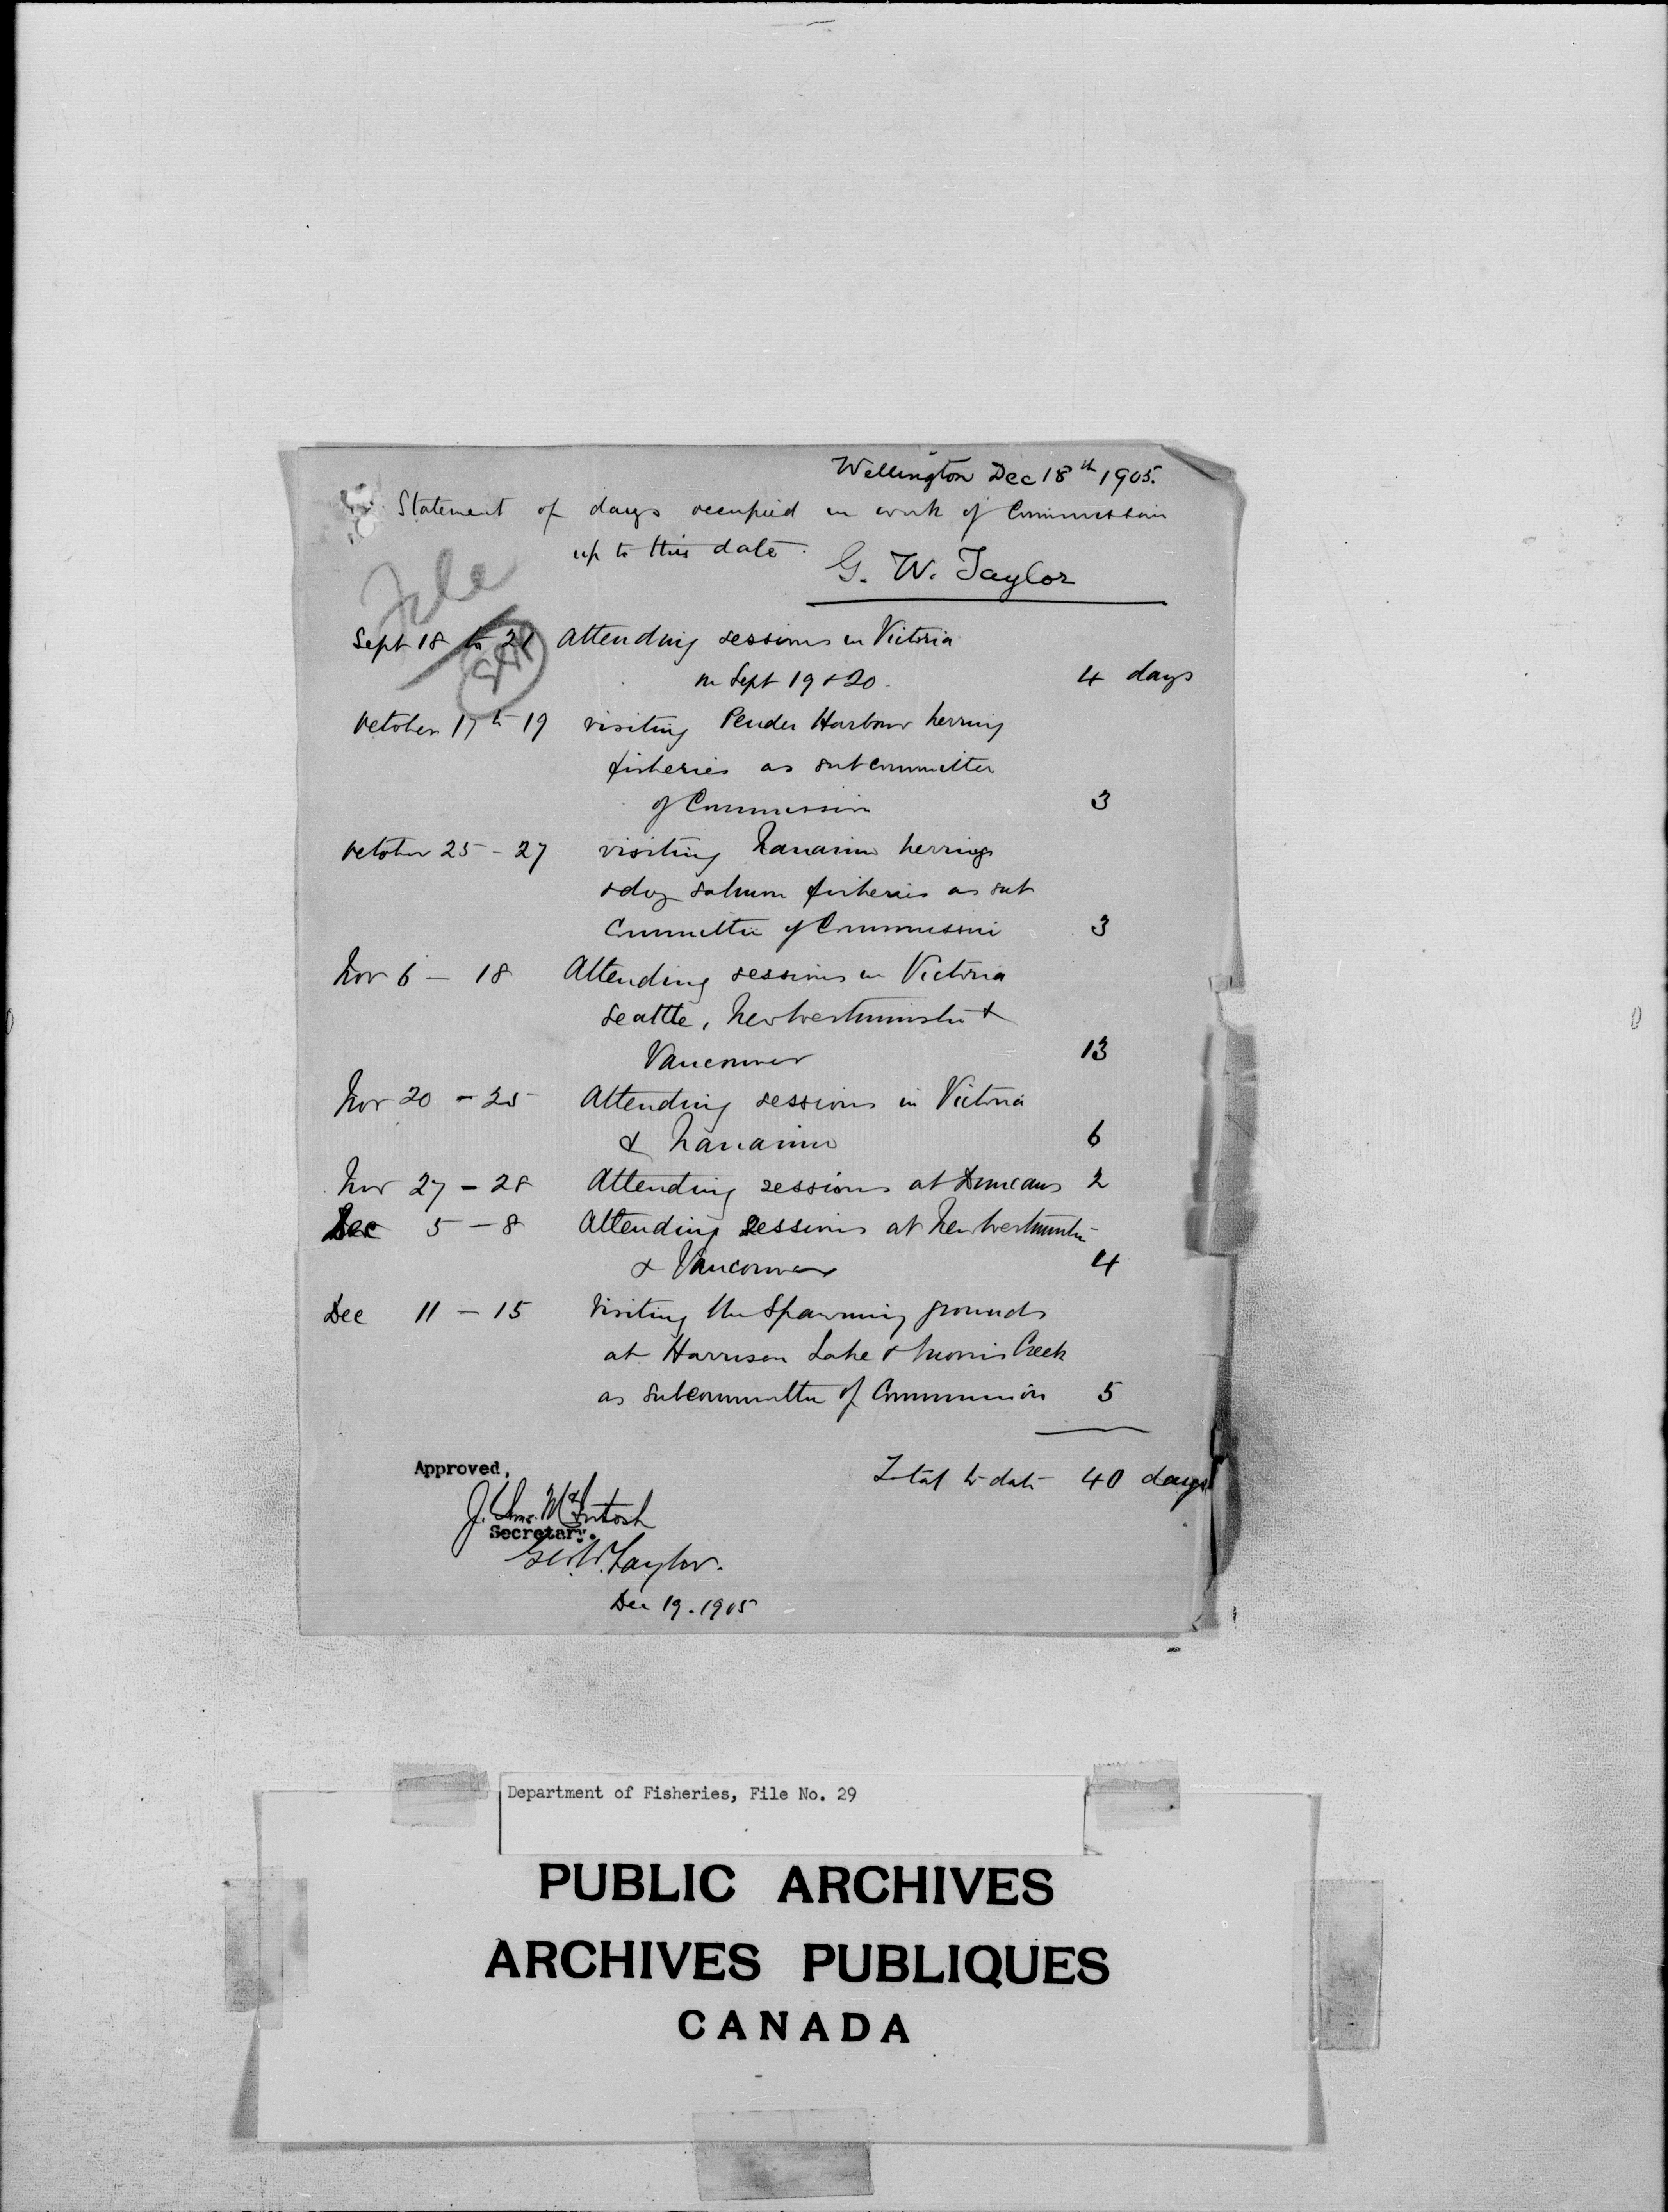 Wellington Dec 18th 1905.
Statement of days occupied in work of Commission
up to this date.
G. W. Taylor
File
Sept 18 to 21 Attending sessions in Victoria
on Sept 19 & 20. 4 days
October 17 to 19 visiting Pender Harbour herring
fisheries as subcommittee
of Commission 3
October 25 - 27 visiting Nanaimo herring
& dog salmon fisheries as sub
Committee of Commission 3
Nov 6 - 18 Attending sessions in Victoria
Seattle, New Westminster &
Vancouver 13
Nov 20 - 25 Attending sessions in Victoria
& Nanaimo 6
Nov 27 - 28 Attending sessions at Duncans 2
Dec 5 - 8 Attending Sessions at New Westminster
& Vancouver 4
Dec 11 - 15 Visiting the Spawning grounds
at Harrison Lake & Morris Creek
as subcommittee of Commission 5
Total to date 40 days
Approved,
J. McIntosh
Secretary.
Geo. W. Taylor.
Dec 19. 1905
Department of Fisheries, File No. 29
PUBLIC ARCHIVES
ARCHIVES PUBLIQUES
CANADA